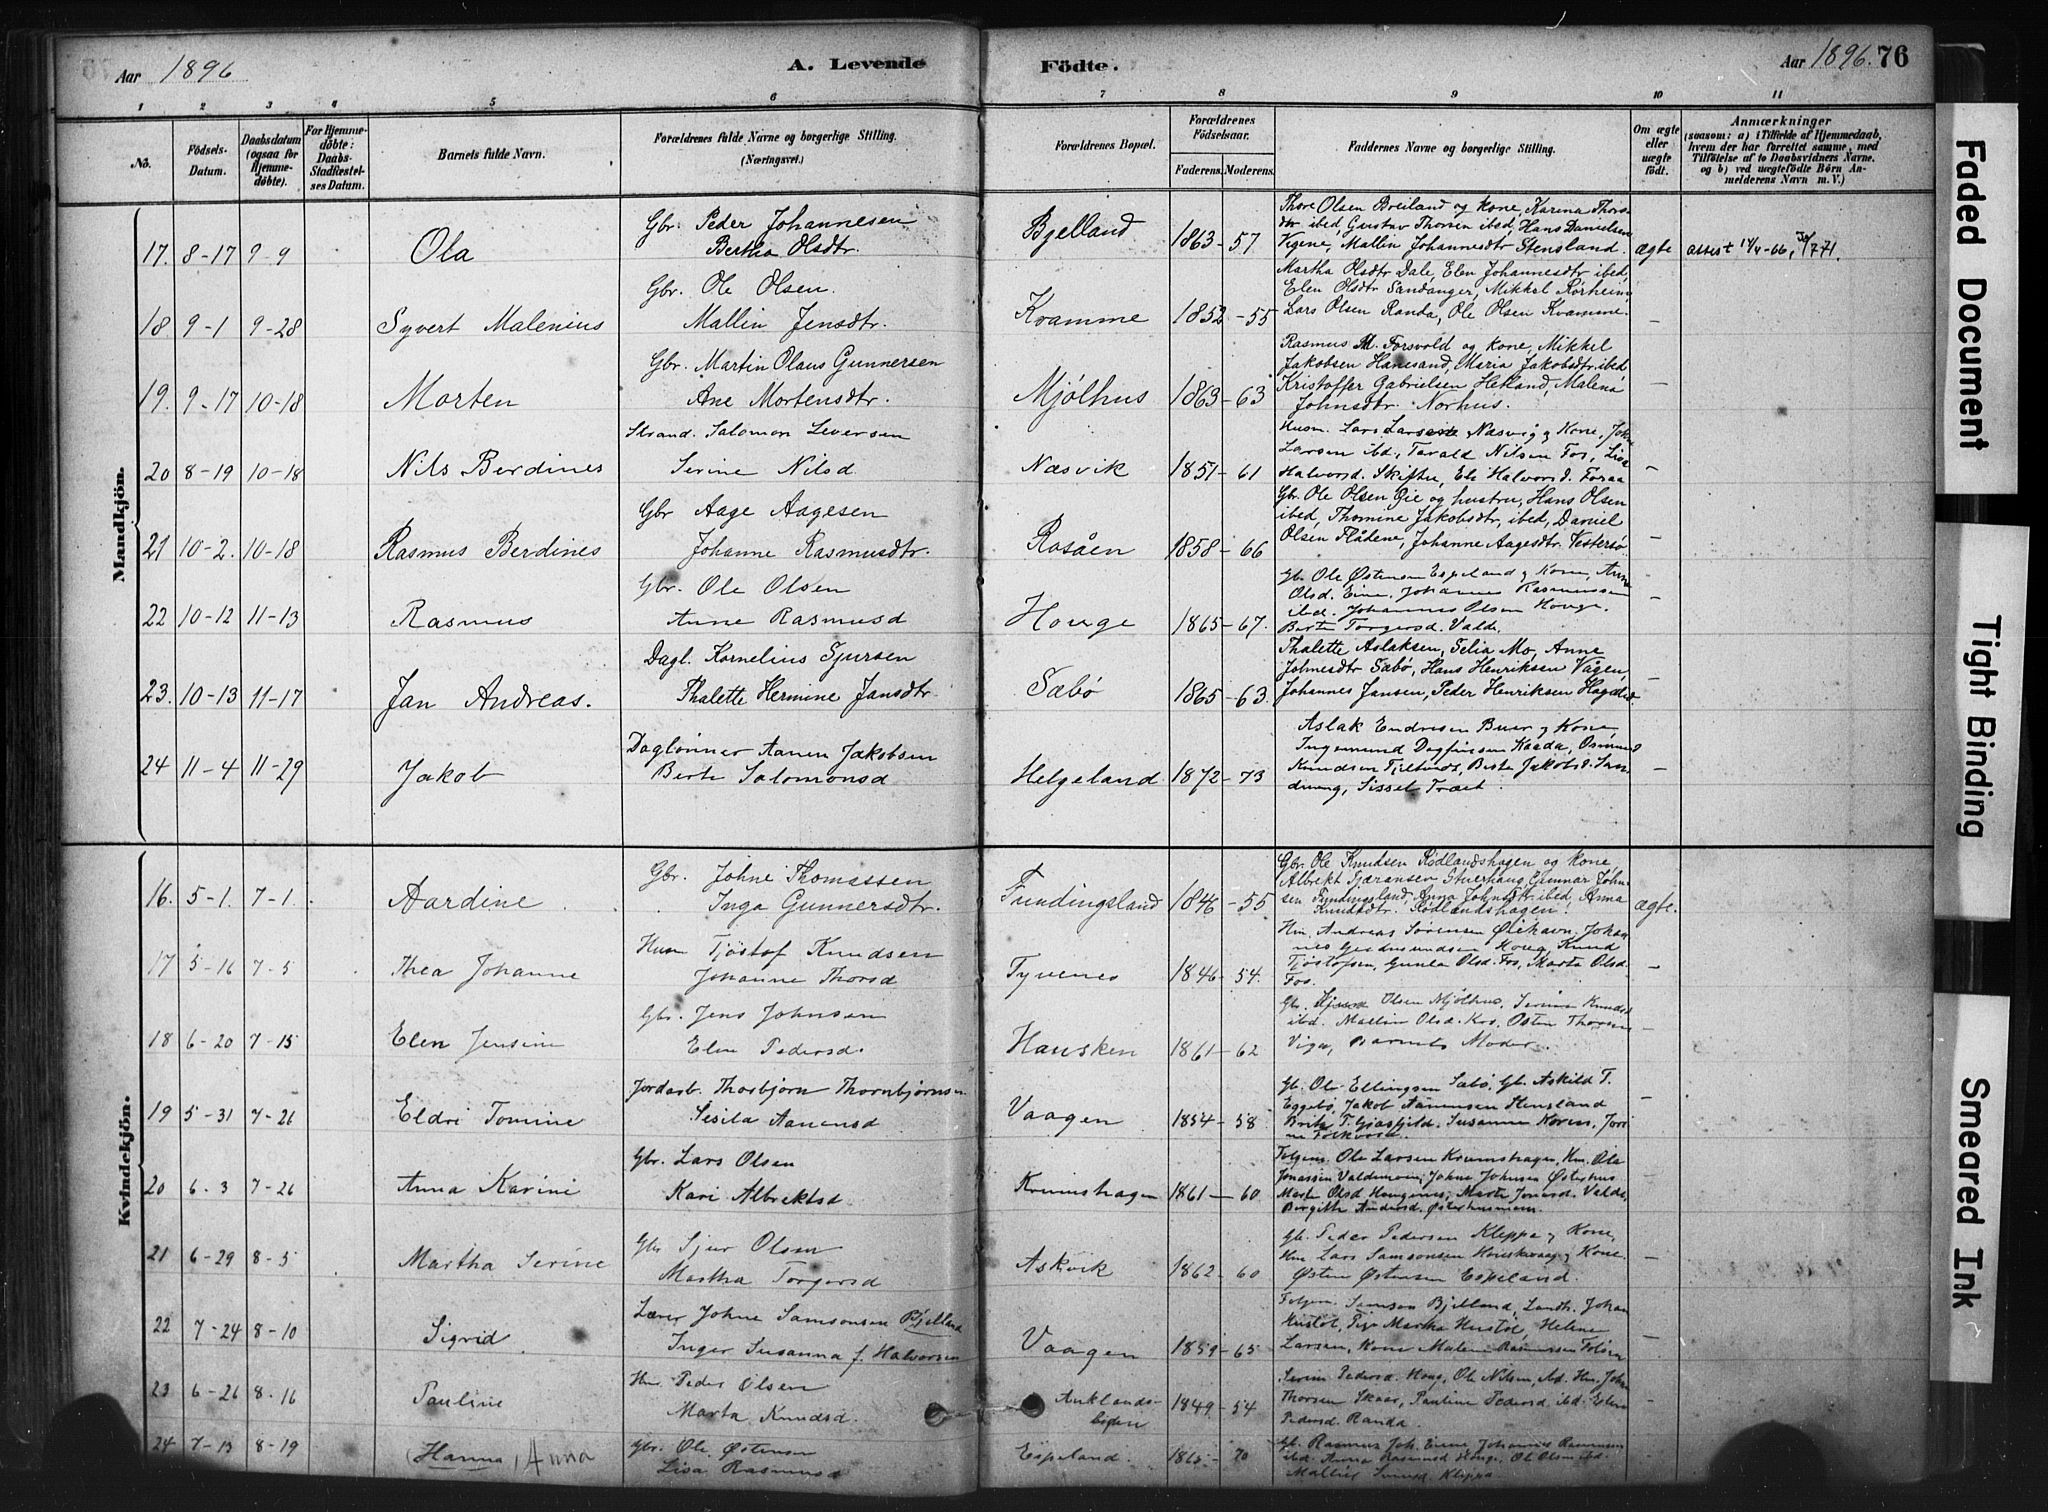 Aar 1896
A. Levende Födte.
Aar 1896. 76
1 2 3 4 5 6 7 8 9 10 11
No.
Födsels-Datum.
Daabsdatum (ogsaa for Hjemmedöbte).
For Hjemmedöbte: Daabs-Stadfæstelses Datum.
Barnets fulde Navn.
Forældrenes fulde Navne og borgerlige Stilling. (Næringsvei.)
Forældrenes Bopæl.
Forældrenes Födselsaar.
Faderens. Moderens.
Faddernes Navne og borgerlige Stilling.
Om ægte eller uægte födt.
Anmærkninger
(saasom: a) i Tilfælde af Hjemmedaab, hvem der har forrettet samme, med Tilföielse af to Daabsvidners Navne. og b) ved uægtefödte Börn Anmelderens Navn m. V.)
Mandkjön.
17. 8-17 9-9 Ola
Gbr. Peder Johannesen
Bertha Olsdtr.
Bjelland 1863-57
Thore Olsen Breiland og kone, Karina Thors-
dtr ibed, Gustav Thorsen ibed, Hans Danielsen
Vigene, Mallin Johannesdtr Stensland.
ægte
18. 9-1 9-28 Syvert Malenius
Gbr. Ole Olsen.
Mallin Jensdtr.
Kvamme 1852-55
Martha Olsdtr Dale, Elen Johannesdtr ibed,
Elen Olsdtr Sandanger, Mikkel Rørheim,
Lars Olsen Randa, Ole Olsen Kvamme.
–
19. 9-17 10-18 Morten
Gbr. Martin Olaus Gunnersen
Ane Mortensdtr.
Mjølhus 1863-63
Rasmus M. Forsvold og kone, Mikkel
Jakobsen Hanesand, Maria Jakobsdtr. ibed
Kristoffer Gabrielsen Hetland, Malena
Johnsdtr. Norhus.
–
20 8-19 10-18 Nils Berdines
Strand. Salomon Leversen
Serine Nilsd
Næsvik 1851-61
Husm. Lars Larsen Næsvig og Kone, John
Larsen ibd, Tarald Nilsen Fos, Lisa
Halvorsd. Skiftun, Eli Halvorsd. Foraa
–
21 10-2. 10-18 Rasmus Berdines
Gbr Aage Aagesen
Johanne Rasmusdtr.
Rosåen 1858-66
Gbr. Ole Olsen Øie og hustru, Hans Olsen
ibed, Thomine Jakobsdtr, ibed, Daniel
Olsen Flådene, Johanne Aagesdtr. Vestersø
–
22 10-12 11-13 Rasmus
Gbr. Ole Olsen
Anne Rasmusd
Houge 1865-67.
Gb. Ole Østensen Espeland og Kone, Anna
Olsd. Eine. Johannes Rasmussen
ibd. Johannes Olsen Houge.
Berte Torgersd. Valde.
–
23. 10-13 11-17 Jan Andreas.
Dagl. Kornelius Sjursen
Thalette Hermine Jansdtr.
Sæbø 1865-63.
Thalette Aslaksen, Selia Mo, Anne
Johnesdtr Sæbø, Hans Henriksen Vågen,
Johannes Jansen, Peder Henriksen
–
24 11-4 11-29 Jakob
Daglønner Aanen Jakobsen
Berte Salomonsd
Helgeland 1872-73
Aslak Endresen Buer og Kone,
Ingemund Dagfinsen Kaada, Osmund
Knudsen, Berte Jakobsd.
Sissel Træet.
–
Kvindekjön.
16. 5-1. 7-1. Aardine.
Gbr. Johne Thomassen
Inga Gunnersdtr.
Fundingsland 1846-55
Gbr. Ole Knudsen Rødlandshagen og kone,
Albrekt Tjæransen Stuerhaug, Gunnar John-
sen Fundingsland, Anna Johnsdtr ibed, Anna
Knudsdtr. Rødlandshagen.
ægte.
17 5-16 7-5 Thea Johanne
Husm Tjøstof Knudsen
Johanne Thorsd
Tyvenes 1846-54.
Hm. Andreas Sørensen Ølehavn, Johan-
nes Gudmundsen Houg, Knud
Tjøstofsen, Gunla Olsd. Fos, Marta Olsd.
Fos.
–
18 6-20 7-15 Elen Jensine
Gbr. Jens Johnsen
Elen Pedersd.
Hausken 1861-62
Gb. Olsen Mjølhus, Serina Knudsd
ibd. Mallin Olsd. Østen Thorsen
Viga, Barnets Moder.
–
19 5-31 7-26 Eldri Tomine
Jordarb. Thorbjørn Thornbjørnsen
Sesila Aanensd
Vaagen 1854-58
Gb. Ole Ellingsen Sæbø, Gb. Askild T.
Eggebø, Jakob Aanensen Hensland
Susanne
–
20 6-3 7-26 Anna Karine
Gbr. Lars Olsen
Kari Albrektsd.
Krumshagen 1861-60
Ole Larsen Krumshagen, Hm. Ole
Jonassen Johne Johnsen Østerhus
Marte Olsd Marte Jonasd. Valde,
Bergitte Andersd.
–
21 6-29 8-5 Martha Serine
Gbr Sjur Olsen
Martha Torgersd
Askvik 1862-60
Gb. Peder Pedersen Kleppe og Kone,
Hm Lars Samsonsen og Kone.
Østen Østensen Espeland.
–
22 7-24 8-10 Sigrid.
Lærer Johne Samsonsen Bjelland
Inger Susanna f. Halvorsen
Vaagen 1859-65
Samson Bjelland, Landh. Johan
Hustøl, Pige Martha Hustøl, Helene
Larsen, Kone Malene Rasmussen
–
23 6-26 8-16 Pauline
Hm Peder Olsen
Marta Knudsd.
Auklands-
1849-54
Serine Pedersd. Houg, Ole Nilsen, ibd. Hm. Johan
Thorsen Skaar, Pauline Pedersd ibd. Elen
Pedersd. Randa.
–
24 7-13 8-19 (Hanna, Anna
Gbr. Ole Østensen
Lisa Rasmusd
Espeland. 1865-70
Gb. Rasmus Joh. Eiene, Johannes Rasmussen
ibd. Anna Rasmusd Houge, Ole Olsen ibd.
Kleppa.
–
Faded Document
Tight Binding
Smeared Ink